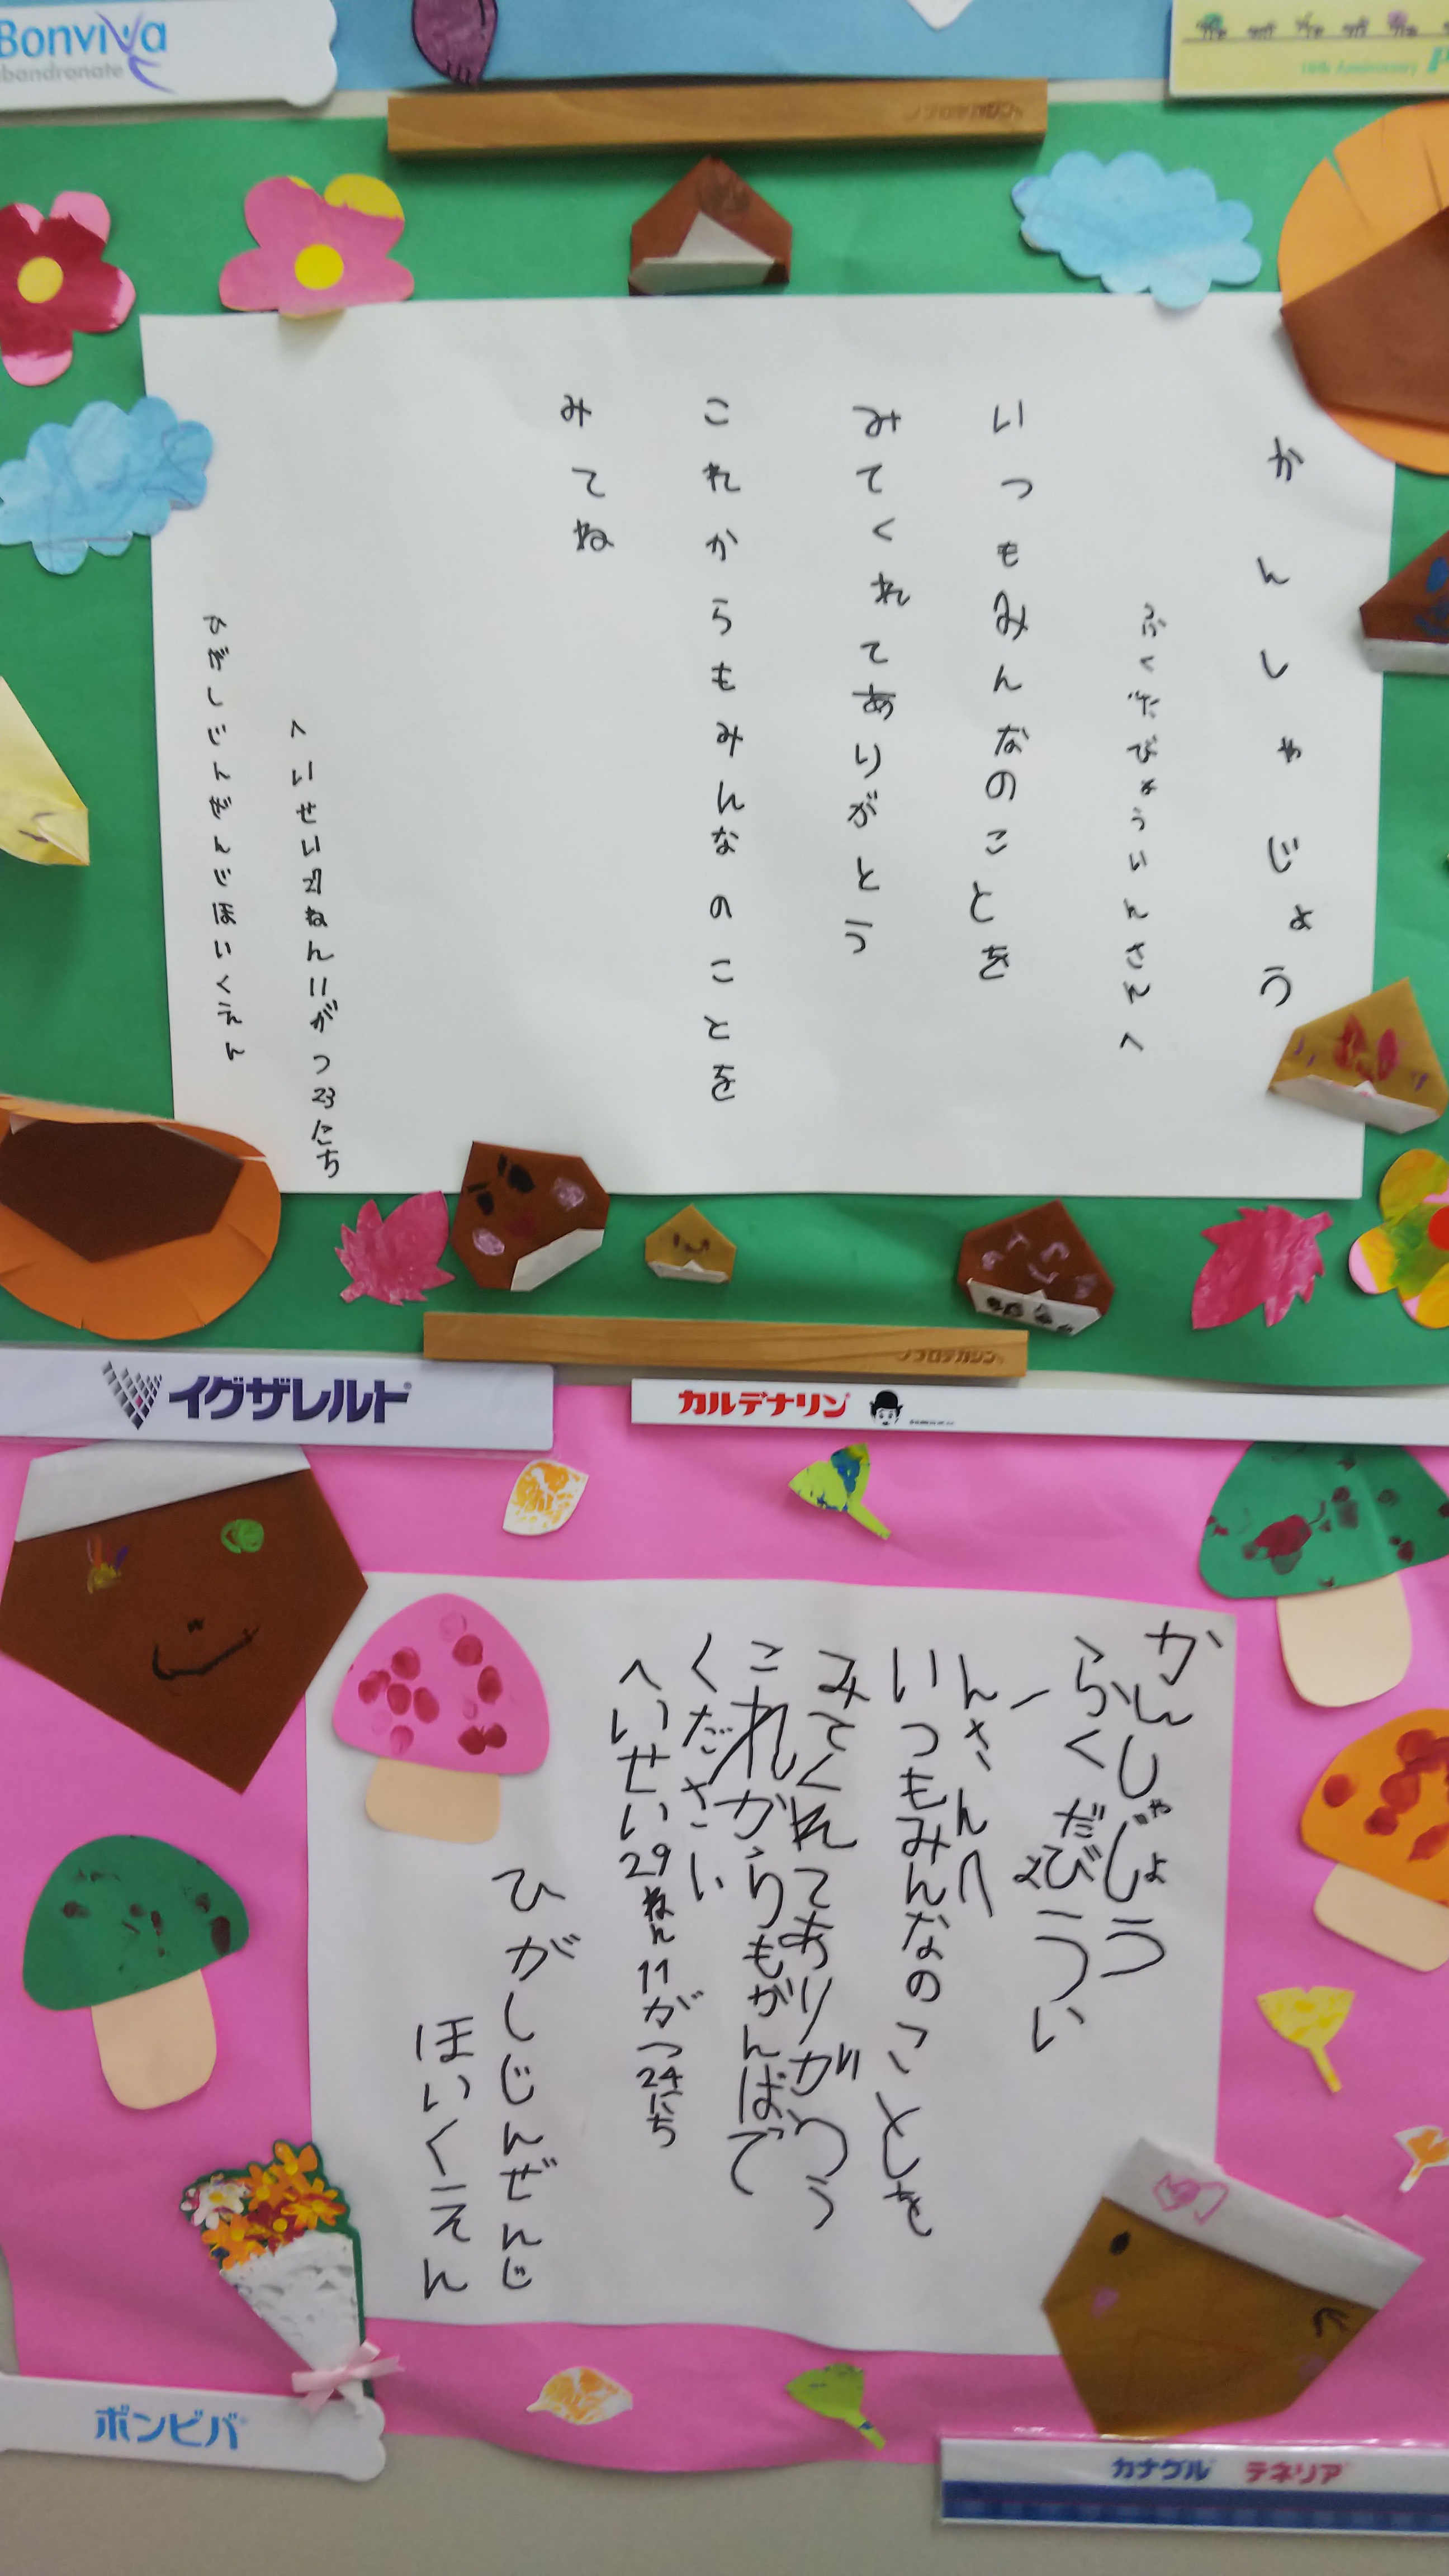 Bonviva
bandronate
10th Anniversary
プロテカジン
かんしゃじょう
ふくだびょういんさんへ
いつもみんなのことを
みてくれてありがとう
これからもみんなのことを
みてね
へいせい29ねん11がつ23にち
ひがしじんぜんじほいくえん
プロテカジン
イグザレルト
カルデナリン
かんしゃじょう
ふくだびょうい
んさんへ
いつもみんなのことを
みてくれてありがとう
これからもがんばで
ください
へいせい29ねん11がつ24にち
ひがしじんぜんじ
ほいくえん
ボンビバ
カナグル テネリア